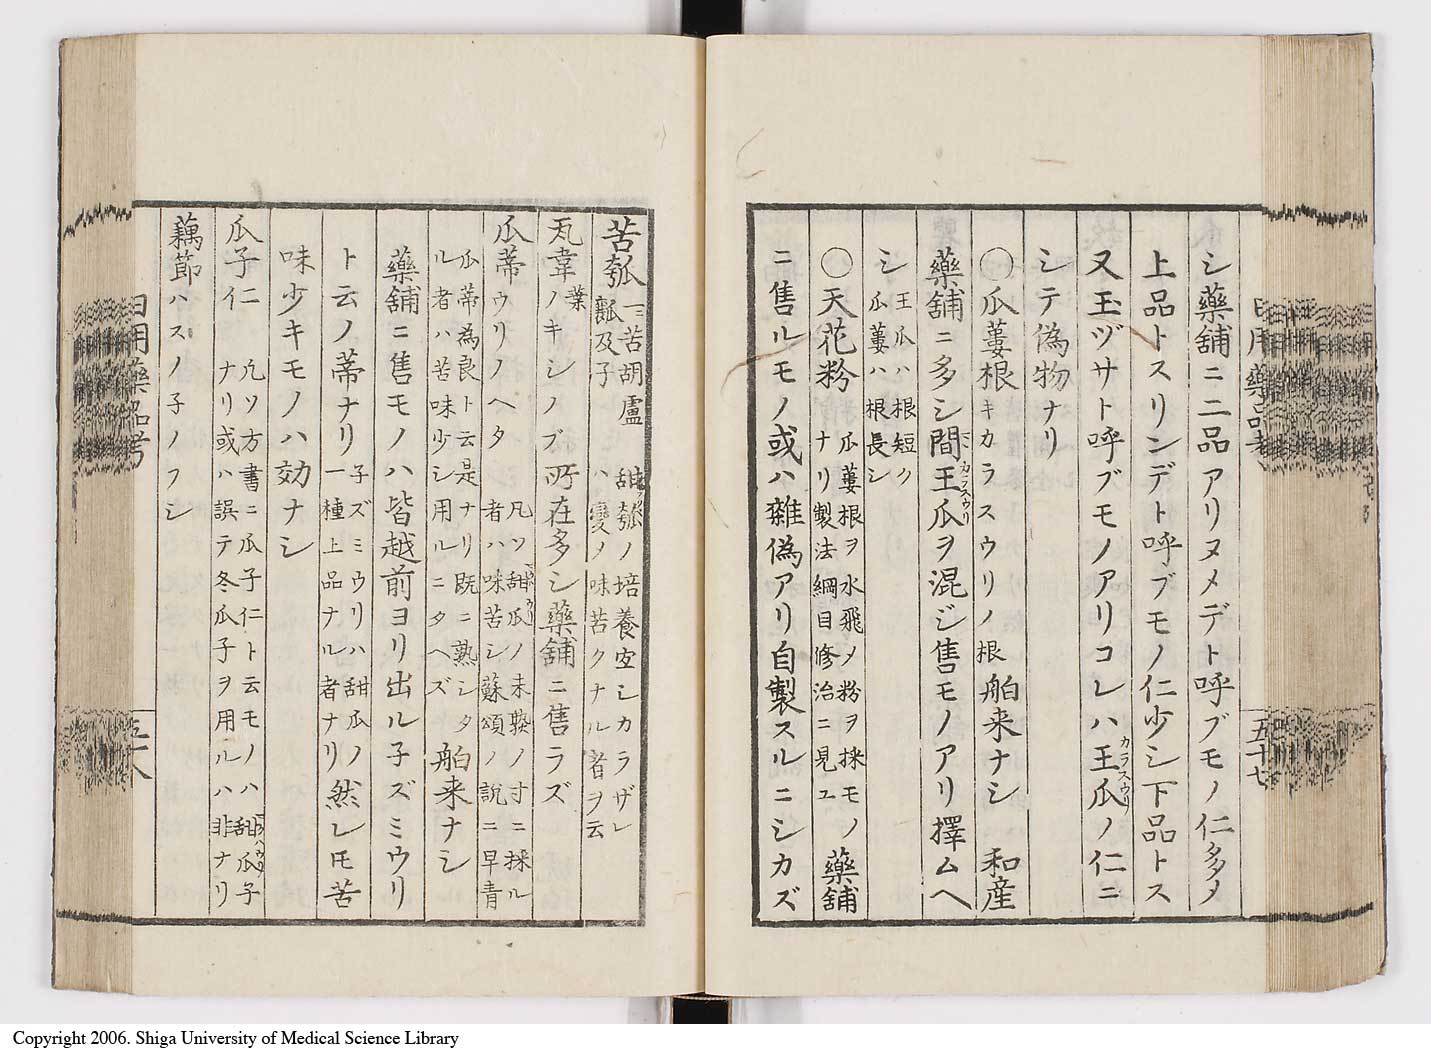 シ藥舗ニ二品アリヌメデト呼ブモノ仁多メ
上品トスリンデト呼ブモノ仁少シ下品トス
又玉ヅサト呼ブモノアリコレハ王瓜ノ仁ニ
カラスウリ
シテ偽物ナリ
〇瓜蔞根キカラスウリノ根舶来ナシ 和産
藥舗ニ多シ間王瓜ヲ混ジ售モノアリ擇ムヘ
マヽカラスウリ
シ王瓜ハ根短ク
瓜蔞ハ根長シ
〇天花粉瓜蔞根ヲ水飛メ粉ヲ採モノ
ナリ製法綱目修治ニ見ユ
藥舗
ニ售ルモノ或ハ雜偽アリ自製スルニシカズ
日用藥品考
五十七
苦瓠一ニ苦胡盧
瓢及子
甜瓠ノ培養宜シカラザレ
ハ變メ味苦クナル者ヲ云
瓦韋ノキシノブ所在多シ藥舗ニ售ラズ
葉
瓜蒂ウリノヘタ
凡ソ甜瓜ノ未熟ノ寸ニ採ル
者ハ味苦シ蘇頌ノ説ニ早青
瓜蒂為良ト云是ナリ既ニ熟シタ
ル者ハ苦味少シ用ルニタヘズ
舶来ナシ
藥舗ニ售モノハ皆越前ヨリ出ル子ズミウリ
ト云ノ蒂ナリ
子ズミウリハ甜瓜ノ
一種上品ナル者ナリ
然レ𪜈苦
味少キモノハ効ナシ
瓜子仁
凡ソ方書ニ瓜子仁ト云モノハ甜瓜子
ナリ或ハ誤テ冬瓜子ヲ用ルハ非ナリ
藕節ハスノ子ノフシ
日用藥品考
五十八
Copyright 2006. Shiga University of Medical Science Library